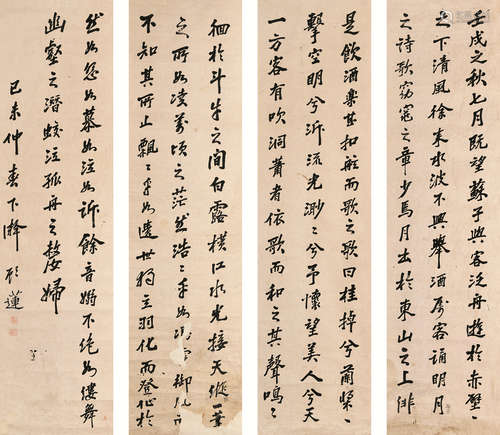 壬戌之秋七月既望蘇子與客泛舟遊於赤壁
之下清風徐來水波不興舉酒屬客誦明月
之詩歌窈窕之章少焉月出於東山之上徘
徊於斗牛之間白露橫江水光接天縱一葦
之所如凌萬頃之茫然浩〻乎如御風而
不知其所止飄〻乎如遺世獨立羽化而登仙於
是飲酒樂甚扣舷而歌之歌曰桂棹兮蘭槳
擊空明兮泝流光渺〻兮予懷望美人兮天
一方客有吹洞蕭者依歌而和之其聲嗚〻
然如怨如慕如泣如訴餘音嫋不絕如縷舞
幽壑之潛蛟泣孤舟之嫠婦
己未仲春下澣 蓮